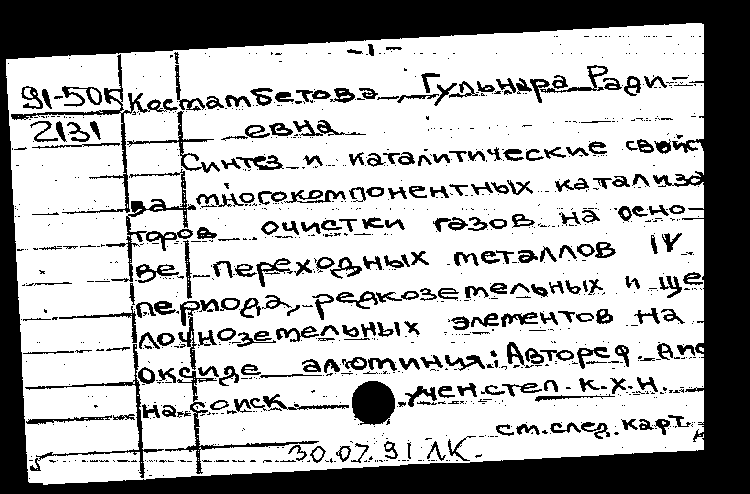 -1-
91-50К Костамбетова, Гульнара Ради-
2131 евна
Синтез и каталитические свойст
ва многокомпонентных катализа
торов очистки газов на осно-
ве переходных металлов IV
периода, редкоземельных и ще
лочноземельных элементов на
оксиде алюминия: Автореф.
на соиск. учен. степ. к.х.н.
см. след. карт.
30.07.91 ЛК.